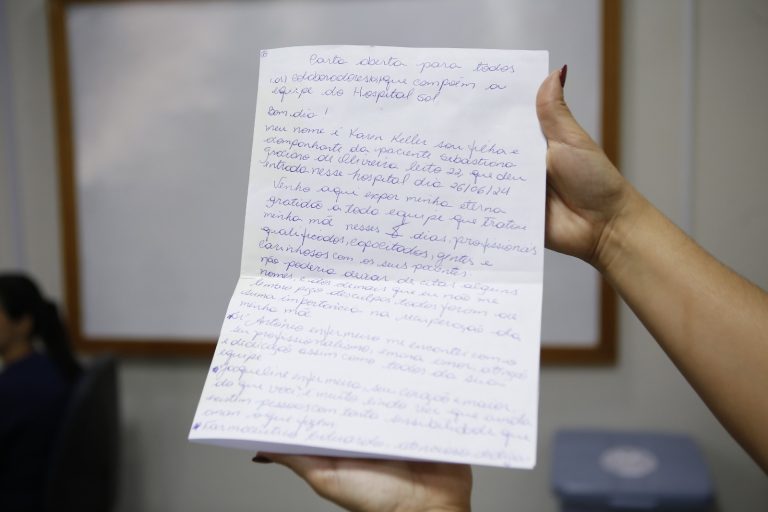 Carta aberta para todos
(os) colaboradores(as) que compõem a
equipe do Hospital Sol
Bom dia!
meu nome é Karen Keller sou filha e
acompanhante da paciente Sebastiana
de Oliveira leito 22 que deu
entrada nesse hospital dia 26/06/24
Venho aqui expor minha eterna
gratidão a toda equipe que tratou
minha mãe nesses 8 dias, profissionais
qualificados, capacitados, gentis e
carinhosos com os seus pacientes.
não poderia deixar de citar alguns
nomes, e aos demais que eu não me
lembro peço desculpas todos foram de
suma importância na recuperação da
minha mãe.
Antônio enfermeiro me encantei com o
seu profissionalismo, emana amor, atenção
e dedicação assim como todos da sua
equipe
Jaqueline enfermeira, seu coração é maior
do que você é muito lindo ver que ainda
existem pessoas com tanta sensibilidade que
amam o que fazem.
Farmacêutico Eduardo, atencioso,